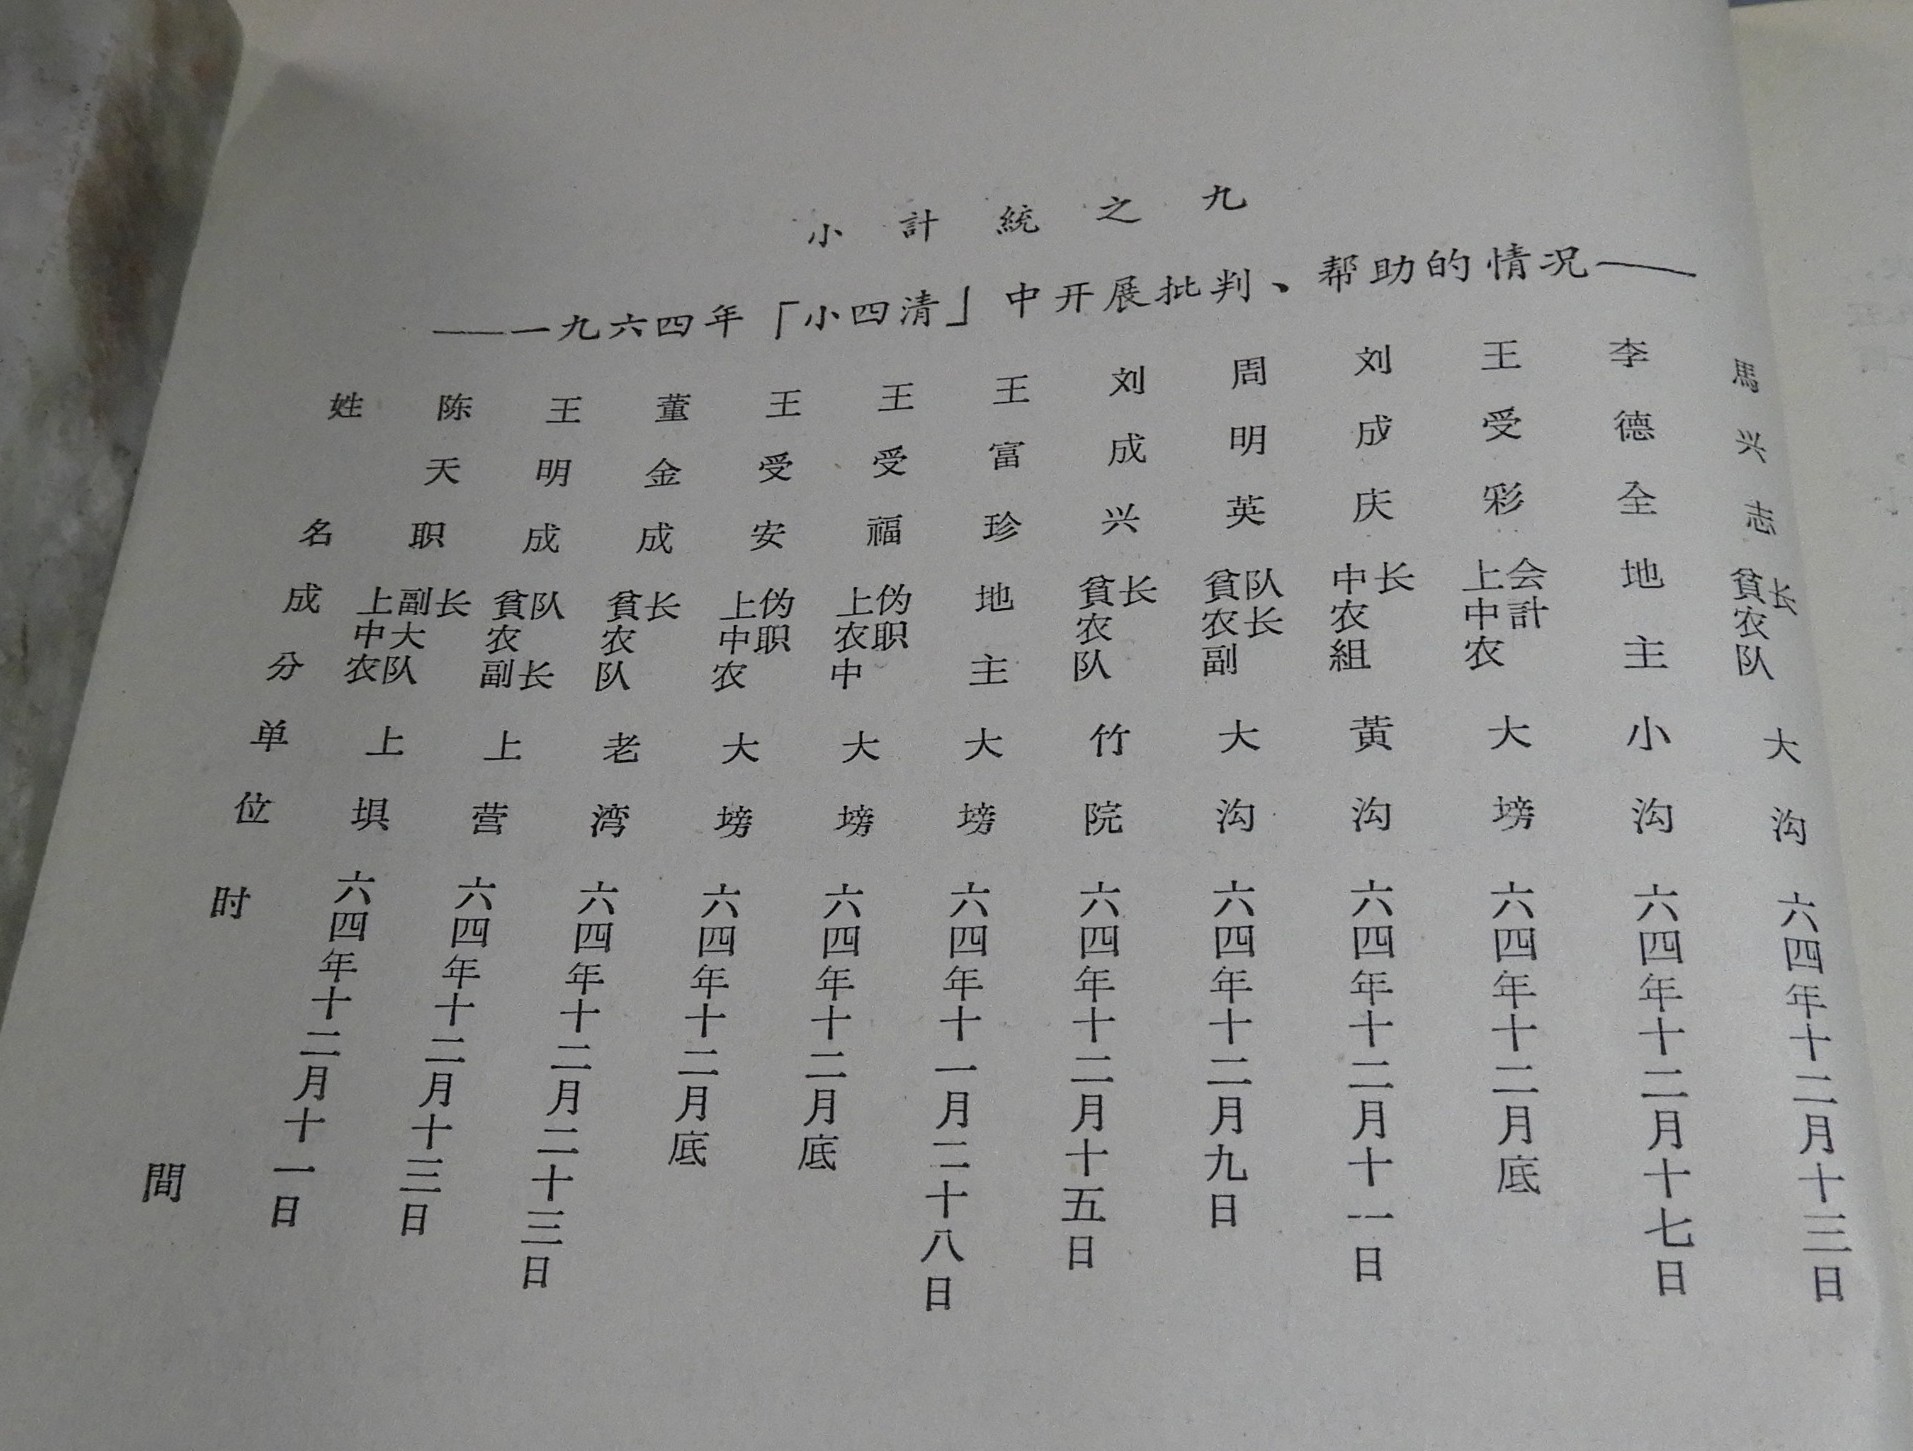 小計統之九
——一九六四年「小四清」中开展批判、帮助的情况——
姓名 成分 单位 时間
陈天职 上中农副大队长 上埧 六四年十二月十一日
王明成 貧农副队长 上营 六四年十二月十三日
董金成 貧农队长 老湾 六四年十二月二十三日
王受安 上中农伪职 大塝 六四年十二月底
王受福 上农中伪职 大塝 六四年十二月底
王富珍 地主 大塝 六四年十一月二十八日
刘成兴 貧农队长 竹院 六四年十二月十五日
周明英 貧农副队长 大沟 六四年十二月九日
刘成庆 中农組长 黄沟 六四年十二月十一日
王受彩 上中农会計 大塝 六四年十二月底
李德全 地主 小沟 六四年十二月十七日
馬兴志 貧农队长 大沟 六四年十二月十三日